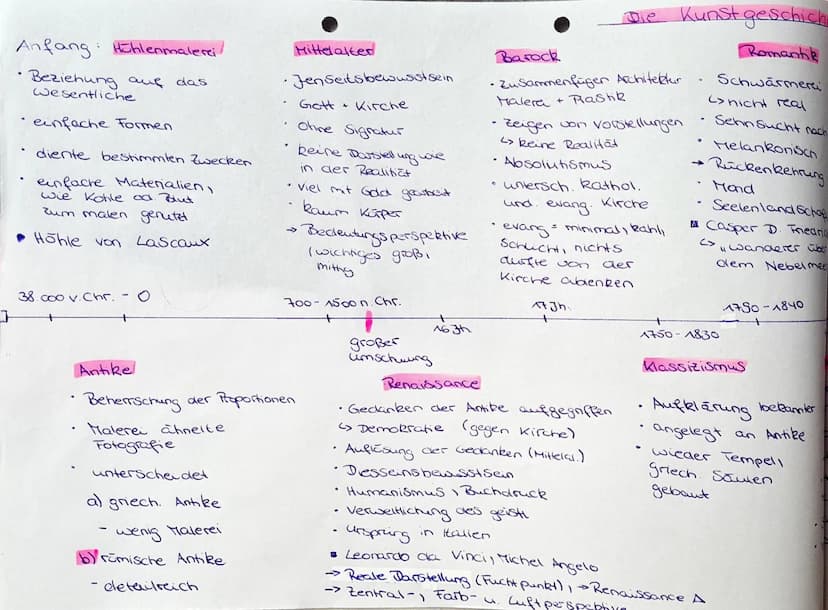 Die Kunstgeschich
Anfang: Höhlenmalerei
· Beziehung auf das
wesentliche
· einfache Formen
· diente bestimmten Zwecken
· einfache Materialien,
wie Kohle od. Blut
zum malen genutzt
• Höhle von Lascaux
Mittelalter
· Jenseitsbewusstsein
· Gott + Kirche
· ohne Signatur
· keine Darstellung wie
in der Realität
· viel mit Gold gearbeit
· kaum Körper
→ Bedeutungsperspektive
(wichtiges groß,
mittig
Barock
· zusammenfügen Architektur
Malerei + Plastik
· zeigen von Vorstellungen
↳ keine Realität
· Absolutismus
· untersch. kathol.
und evang. Kirche
· evang = minimal, kahl,
schlicht, nichts
durfte von der
Kirche ablenken
Romantik
· Schwärmerei
↳ nicht real
· Sehnsucht nach
· Melankonisch
→ Rückenkehrung
· Mond
· Seelenlandschaf
▪ Casper D. Friedric
↳ „Wanderer übe
dem Nebelmee
38.000 v. Chr. - 0
700 - 1500 n. Chr.
16 Jh
17 Jh.
1790 - 1840
großer
umschwung
1750 - 1830
Antike
· Beherrschung der Proportionen
· Malerei ähnelte
Fotografie
· unterscheidet
a) griech. Antike
- wenig Malerei
b) römische Antike
- deteilreich
Renaissance
· Gedanken der Antike aufgegriffen
↳ Demokratie (gegen Kirche)
· Auflösung der Gedanken (Mittelal.)
· Diesseinsbewusstsein
· Humanismus, Buchdruck
· Verweltlichung des geistl
· Ursprung in Italien
▪ Leonardo da Vinci, Michel Angelo
→ Reale Darstellung (Fluchtpunkt), → Renaissance Δ
→ Zentral-, Farb- u. Luftperspektive
Klassizismus
· Aufklärung bekannter
· angelegt an Antike
· wieder Tempel,
griech. Säulen
gebaut